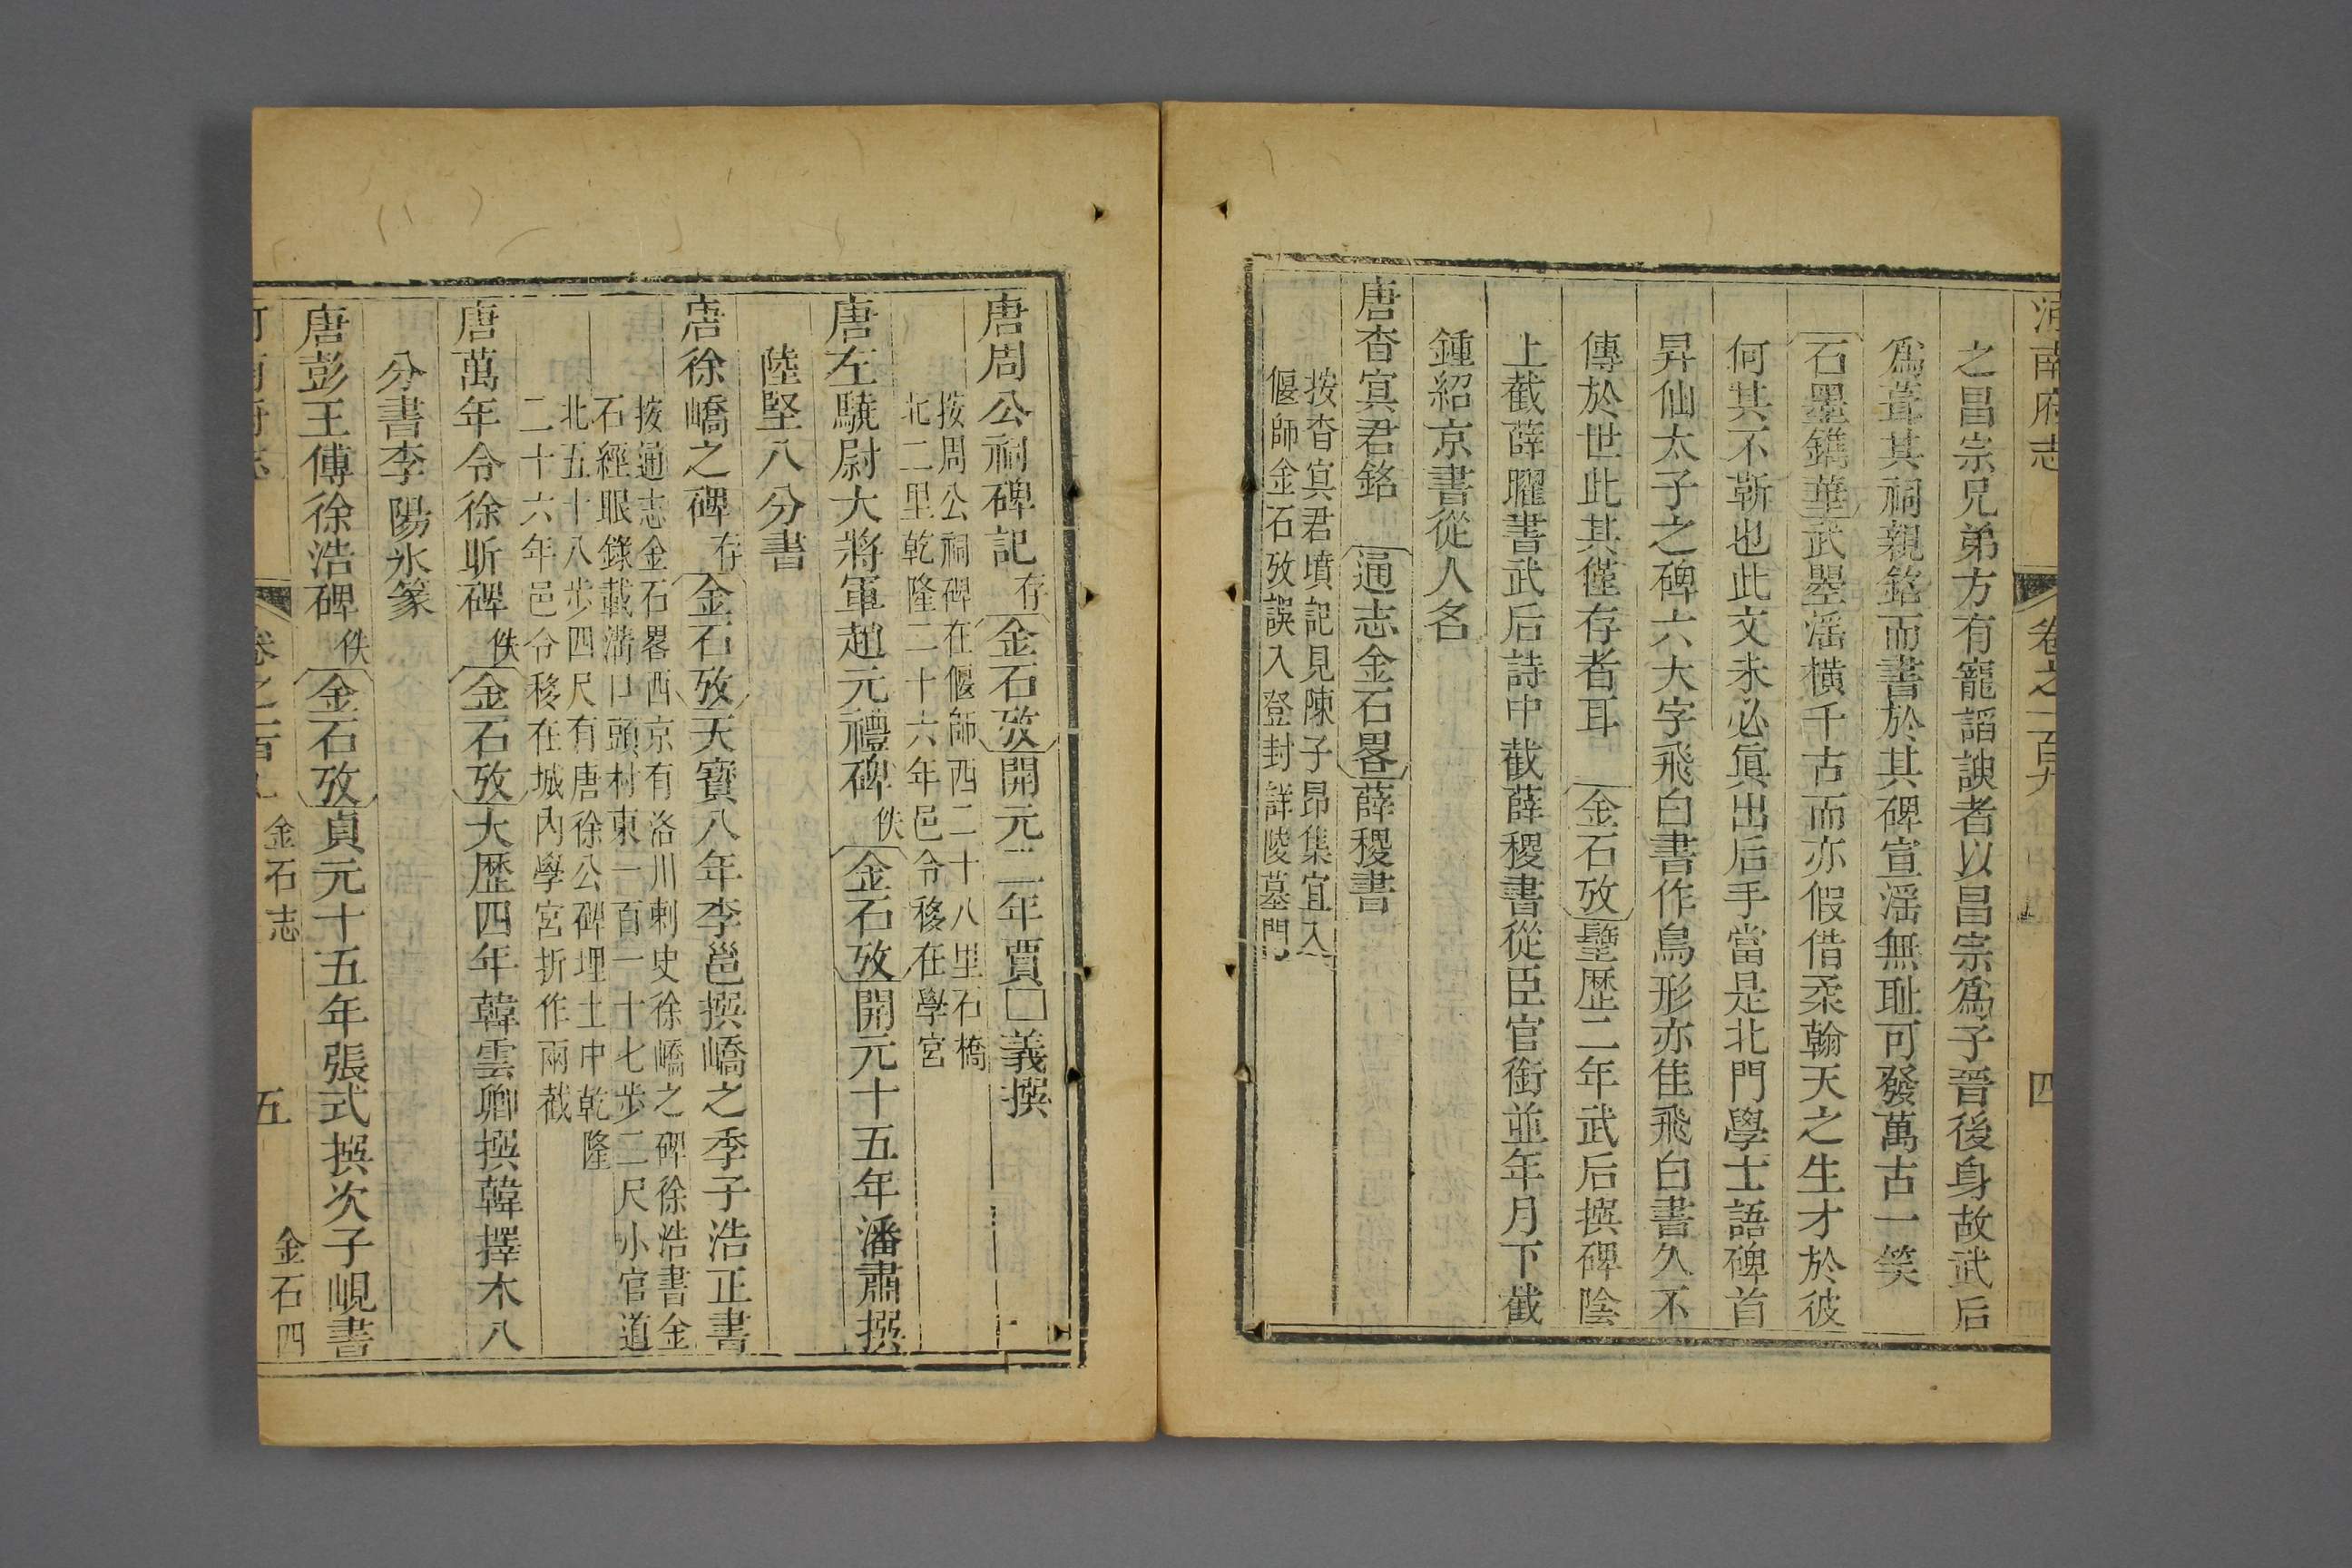 河南府志 卷之一百九 四
之昌宗兄弟方有寵諂諛者以昌宗爲子晉後身故武后
爲葺其祠親銘而書於其碑宣淫無耻可發萬古一笑
石墨鐫華武曌淫橫千古而亦假借柔翰天之生才於彼
何其不靳也此文未必眞出后手當是北門學士語碑首
昇仙太子之碑六大字飛白書作鳥形亦佳飛白書久不
傳於世此其僅存者耳 金石攷聖歷二年武后撰碑陰
上截薛曜書武后詩中截薛稷書從臣官銜並年月下截
鍾紹京書從人名
唐杳寘君銘 通志金石畧薛稷書
按杳寘君墳記見陳子昂集宜入
偃師金石攷誤入登封詳陵墓門
唐周公祠碑記 存 金石攷開元二年賈□義撰
按周公祠碑在偃師西二十八里石橋
北二里乾隆二十六年邑令移在學宮
唐左驍尉大將軍趙元禮碑 佚 金石攷開元十五年潘肅撰
陸堅八分書
唐徐嶠之碑 存 金石攷天寶八年李邕撰嶠之季子浩正書
按通志金石畧西京有洛川刺史徐嶠之碑徐浩書金
石經眼錄載溝口頭村東一百一十七步二尺小官道
北五十八步四尺有唐徐公碑埋土中乾隆
二十六年邑令移在城內學宮折作兩截
唐萬年令徐昕碑 佚 金石攷大歷四年韓雲卿撰韓擇木八
分書李陽氷篆
唐彭王傅徐浩碑 佚 金石攷貞元十五年張式撰次子峴書
河南府志 卷之一百九 金石志 五 金石四